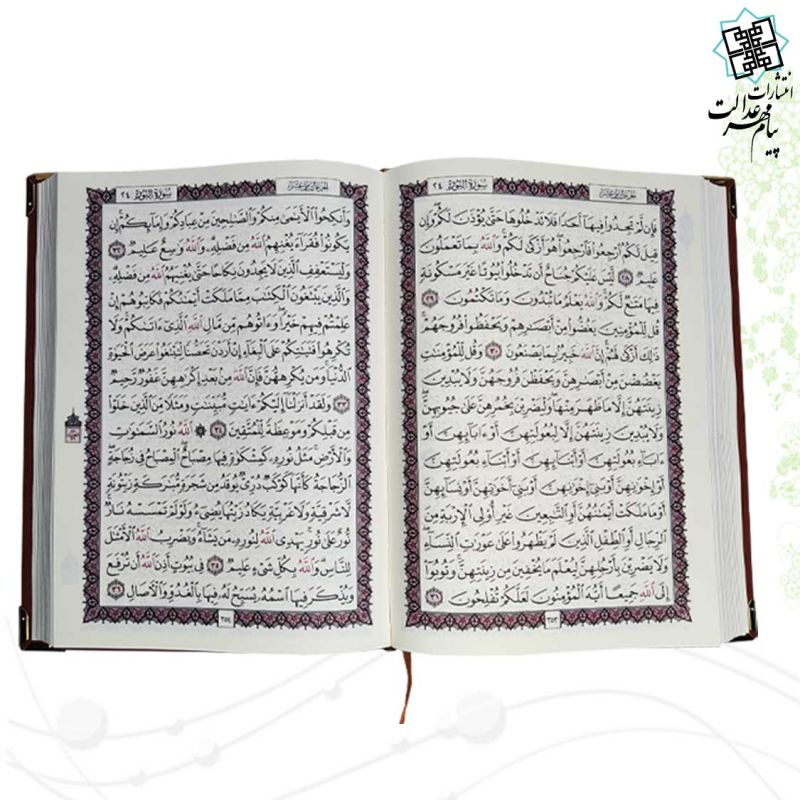 انتشارات
پیام مهر عدالت
سُورَةُ النُّورِ ٢٤
فَإِن لَّمْ تَجِدُوا۟ فِيهَآ أَحَدًا فَلَا تَدْخُلُوهَا حَتَّىٰ يُؤْذَنَ لَكُمْ ۖ وَإِن
قِيلَ لَكُمُ ٱرْجِعُوا۟ فَٱرْجِعُوا۟ ۖ هُوَ أَزْكَىٰ لَكُمْ ۚ وَٱللَّهُ بِمَا تَعْمَلُونَ
عَلِيمٌ ﴿٢٨﴾ لَّيْسَ عَلَيْكُمْ جُنَاحٌ أَن تَدْخُلُوا۟ بُيُوتًا غَيْرَ مَسْكُونَةٍ
فِيهَا مَتَـٰعٌ لَّكُمْ ۚ وَٱللَّهُ يَعْلَمُ مَا تُبْدُونَ وَمَا تَكْتُمُونَ ﴿٢٩﴾
قُل لِّلْمُؤْمِنِينَ يَغُضُّوا۟ مِنْ أَبْصَـٰرِهِمْ وَيَحْفَظُوا۟ فُرُوجَهُمْ ۚ
ذَٰلِكَ أَزْكَىٰ لَهُمْ ۗ إِنَّ ٱللَّهَ خَبِيرٌۢ بِمَا يَصْنَعُونَ ﴿٣٠﴾ وَقُل لِّلْمُؤْمِنَـٰتِ
يَغْضُضْنَ مِنْ أَبْصَـٰرِهِنَّ وَيَحْفَظْنَ فُرُوجَهُنَّ وَلَا يُبْدِينَ
زِينَتَهُنَّ إِلَّا مَا ظَهَرَ مِنْهَا ۖ وَلْيَضْرِبْنَ بِخُمُرِهِنَّ عَلَىٰ جُيُوبِهِنَّ ۖ
وَلَا يُبْدِينَ زِينَتَهُنَّ إِلَّا لِبُعُولَتِهِنَّ أَوْ ءَابَآئِهِنَّ أَوْ
ءَابَآءِ بُعُولَتِهِنَّ أَوْ أَبْنَآئِهِنَّ أَوْ أَبْنَآءِ بُعُولَتِهِنَّ
أَوْ إِخْوَٰنِهِنَّ أَوْ بَنِىٓ إِخْوَٰنِهِنَّ أَوْ بَنِىٓ أَخَوَٰتِهِنَّ أَوْ نِسَآئِهِنَّ
أَوْ مَا مَلَكَتْ أَيْمَـٰنُهُنَّ أَوِ ٱلتَّـٰبِعِينَ غَيْرِ أُو۟لِى ٱلْإِرْبَةِ مِنَ
ٱلرِّجَالِ أَوِ ٱلطِّفْلِ ٱلَّذِينَ لَمْ يَظْهَرُوا۟ عَلَىٰ عَوْرَٰتِ ٱلنِّسَآءِ ۖ
وَلَا يَضْرِبْنَ بِأَرْجُلِهِنَّ لِيُعْلَمَ مَا يُخْفِينَ مِن زِينَتِهِنَّ ۚ وَتُوبُوٓا۟
إِلَى ٱللَّهِ جَمِيعًا أَيُّهَ ٱلْمُؤْمِنُونَ لَعَلَّكُمْ تُفْلِحُونَ ﴿٣١﴾
٣٥٣
سُورَةُ النُّورِ ٢٤
وَأَنكِحُوا۟ ٱلْأَيَـٰمَىٰ مِنكُمْ وَٱلصَّـٰلِحِينَ مِنْ عِبَادِكُمْ وَإِمَآئِكُمْ ۚ إِن
يَكُونُوا۟ فُقَرَآءَ يُغْنِهِمُ ٱللَّهُ مِن فَضْلِهِۦ ۗ وَٱللَّهُ وَٰسِعٌ عَلِيمٌ ﴿٣٢﴾
وَلْيَسْتَعْفِفِ ٱلَّذِينَ لَا يَجِدُونَ نِكَاحًا حَتَّىٰ يُغْنِيَهُمُ ٱللَّهُ مِن فَضْلِهِۦ ۗ
وَٱلَّذِينَ يَبْتَغُونَ ٱلْكِتَـٰبَ مِمَّا مَلَكَتْ أَيْمَـٰنُكُمْ فَكَاتِبُوهُمْ إِنْ
عَلِمْتُمْ فِيهِمْ خَيْرًا ۖ وَءَاتُوهُم مِّن مَّالِ ٱللَّهِ ٱلَّذِىٓ ءَاتَىٰكُمْ ۚ وَلَا
تُكْرِهُوا۟ فَتَيَـٰتِكُمْ عَلَى ٱلْبِغَآءِ إِنْ أَرَدْنَ تَحَصُّنًا لِّتَبْتَغُوا۟ عَرَضَ ٱلْحَيَوٰةِ
ٱلدُّنْيَا ۚ وَمَن يُكْرِههُّنَّ فَإِنَّ ٱللَّهَ مِنۢ بَعْدِ إِكْرَٰهِهِنَّ غَفُورٌ رَّحِيمٌ
﴿٣٣﴾ وَلَقَدْ أَنزَلْنَآ إِلَيْكُمْ ءَايَـٰتٍ مُّبَيِّنَـٰتٍ وَمَثَلًا مِّنَ ٱلَّذِينَ خَلَوْا۟
مِن قَبْلِكُمْ وَمَوْعِظَةً لِّلْمُتَّقِينَ ﴿٣٤﴾ ۞ ٱللَّهُ نُورُ ٱلسَّمَـٰوَٰتِ
وَٱلْأَرْضِ ۚ مَثَلُ نُورِهِۦ كَمِشْكَوٰةٍ فِيهَا مِصْبَاحٌ ۖ ٱلْمِصْبَاحُ فِى زُجَاجَةٍ ۖ
ٱلزُّجَاجَةُ كَأَنَّهَا كَوْكَبٌ دُرِّىٌّ يُوقَدُ مِن شَجَرَةٍ مُّبَـٰرَكَةٍ زَيْتُونَةٍ
لَّا شَرْقِيَّةٍ وَلَا غَرْبِيَّةٍ يَكَادُ زَيْتُهَا يُضِىٓءُ وَلَوْ لَمْ تَمْسَسْهُ نَارٌ ۚ
نُّورٌ عَلَىٰ نُورٍ ۗ يَهْدِى ٱللَّهُ لِنُورِهِۦ مَن يَشَآءُ ۚ وَيَضْرِبُ ٱللَّهُ ٱلْأَمْثَـٰلَ
لِلنَّاسِ ۗ وَٱللَّهُ بِكُلِّ شَىْءٍ عَلِيمٌ ﴿٣٥﴾ فِى بُيُوتٍ أَذِنَ ٱللَّهُ أَن تُرْفَعَ
وَيُذْكَرَ فِيهَا ٱسْمُهُۥ يُسَبِّحُ لَهُۥ فِيهَا بِٱلْغُدُوِّ وَٱلْـَٔاصَالِ ﴿٣٦﴾
٣٥٤